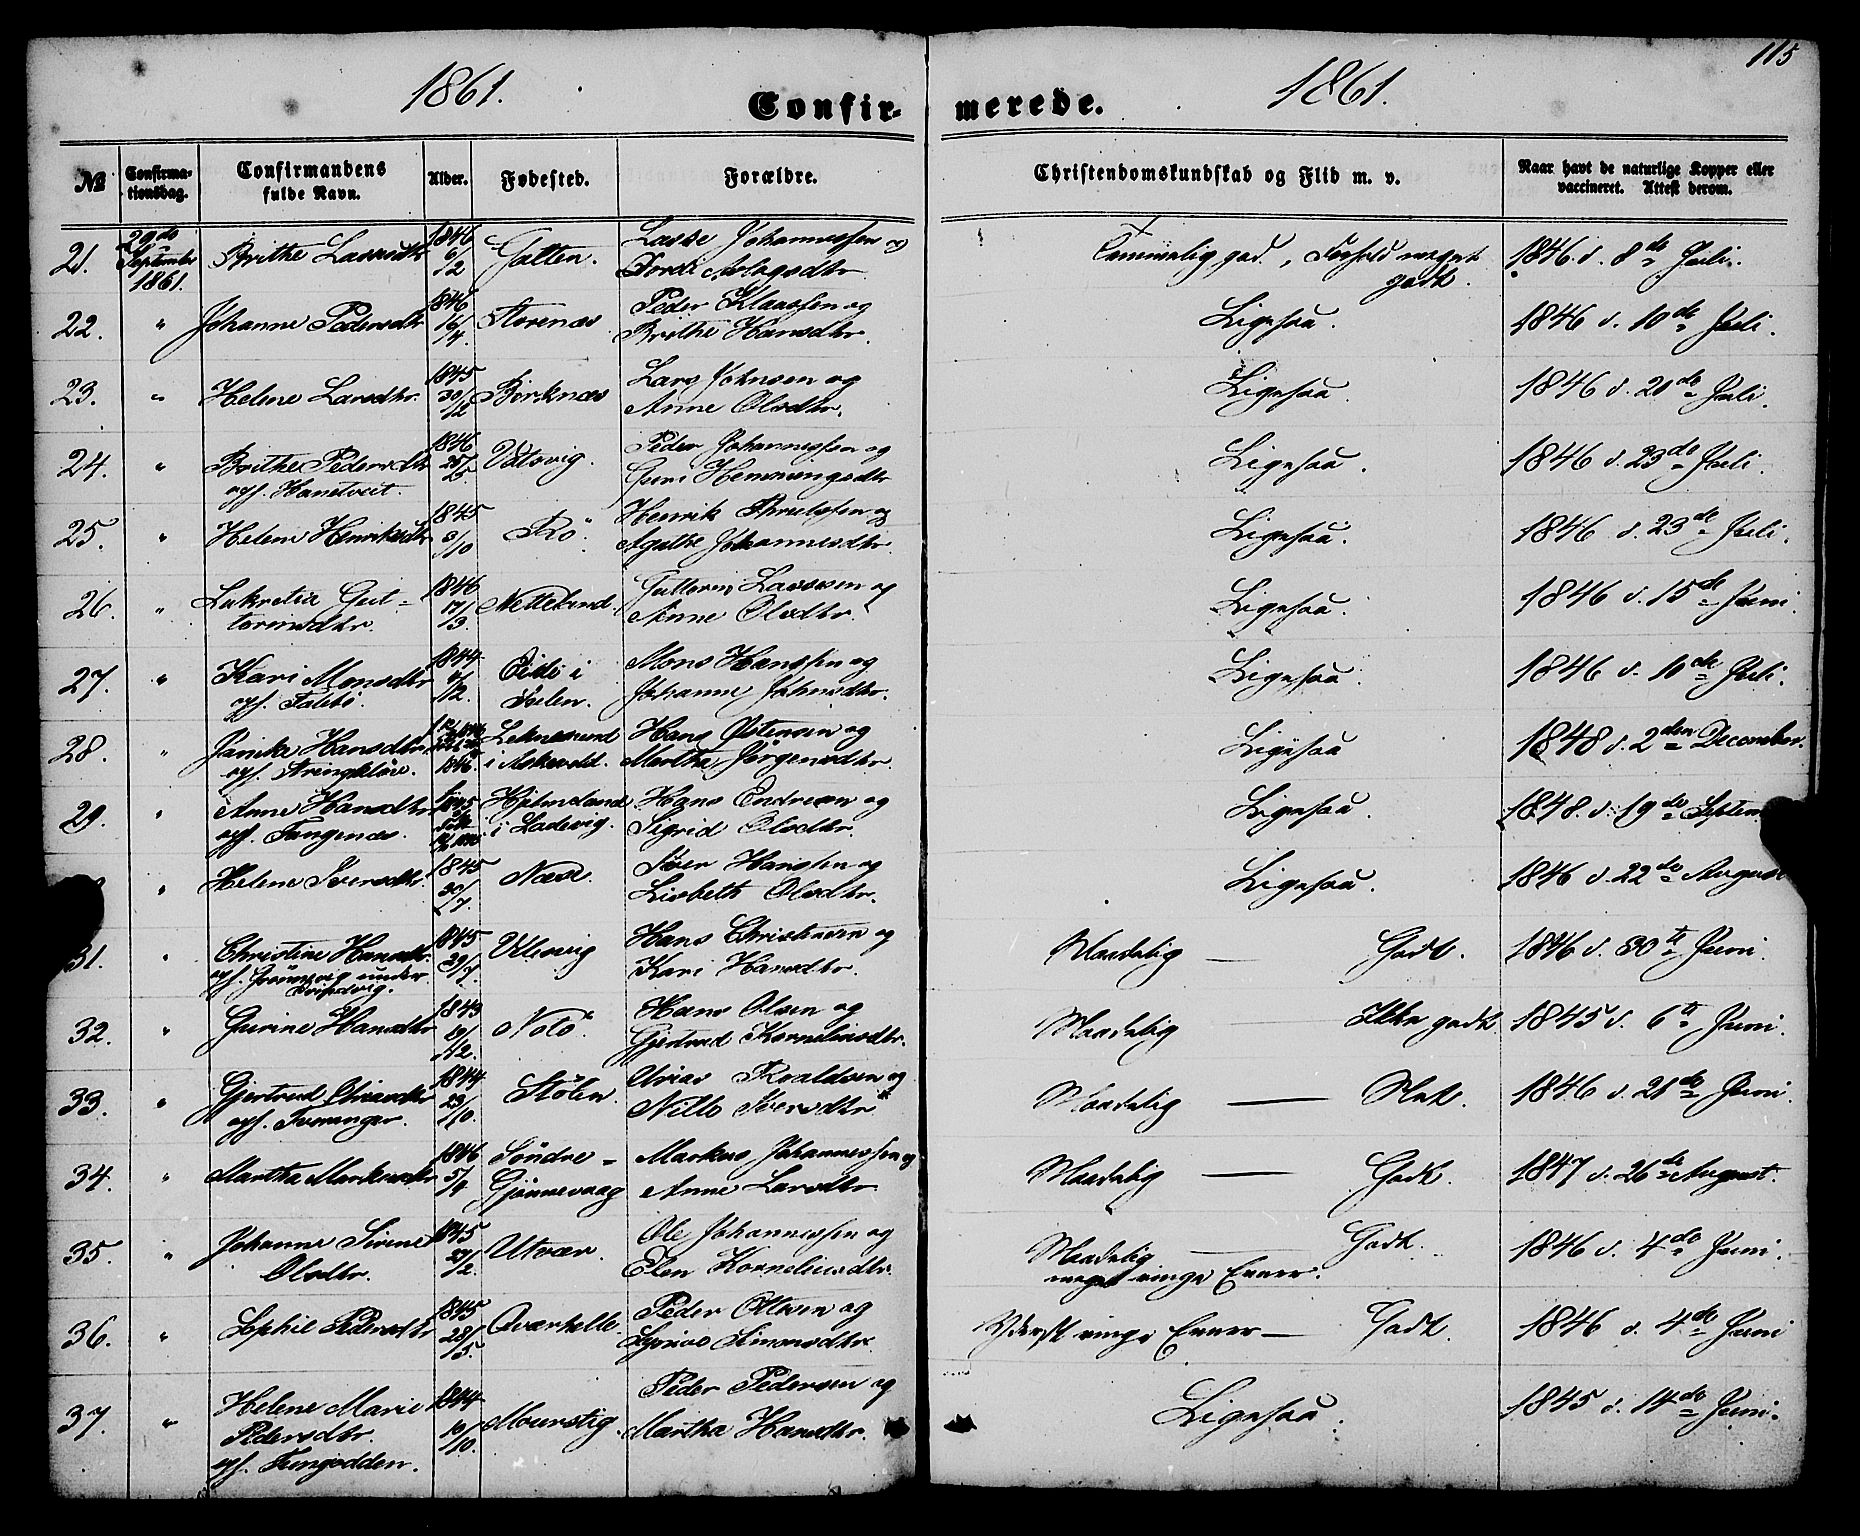 115
1861. 1861.
Confir- merede.
№ Confirma- Confirmandens Alder. Fødested. Forældre. Christendomskundskab og Flid m. v. Naar havt de naturlige Kopper eller
tionsdag. fulde Navn. vaccineret. Attest derom.
21. 29de September 1861. Brithe Lassesdtr 1846 6/2 Gatten. Lasse Johannessen og Aslagsdtr. Temmelig god, Forhold meget godt. 1846 d. 8de Juli.
22. " Johanne Pedersdtr 1846 16/4 Storenæs Peder Klaussen og Brithe Hansdtr. Ligesaa. 1846 d. 10de Juli.
23. " Helene Larsdtr. 1845 30/12 Birknæs Lars Johnsen og Anne Olsdtr. Ligesaa. 1846 d. 20de Juli.
24. " Brithe Pedersdtr opf. Hanstveit. 1846 25/5 Vatsvig. Peder Johannessen og Guri Hemmingsdtr Ligesaa. 1846 d. 23de Juli.
25. " Helene Henriksdtr 1845 3/10 Rö. Henrik Thruelssen og Agathe Johannesdtr. Ligesaa. 1846 d. 23de Juli.
26. " Lukretia Gut- tormsdtr. 1846 17/3 Nettelund. Guttorm Lassesen og Anne Olsdtr. Ligesaa. 1846 d. 15de Juni.
27. " Kari Monsdtr opf. 1844 /12. Eide i Mons Hanssen og Johanne Johnsdtr. Ligesaa. 1846 d. 10de Juli.
28. " Hansdtr. opf. 1846. Leknesund i Askevold. Hans Østensen og Martha Jørgensdtr. Ligesaa 1848 d. 2den December.
29. " Anne Hansdtr opf. Tangenæs. 1845 i Ladevig. Hans Endresen og Sigrid Olsdtr. Ligesaa. 1848. d. 19de Septem
" Helene Iversdtr. 1845 30/7. Næse. Iver Hanssen og Lisbeth Olsdtr. Ligesaa. 1846 d. 22de August
31. " Christine Hansdtr. opf. Grønevig under 1845 29/7. Hans Christensen og Kari Hansdtr. Maadelig — Godt. 1846 d. 30te Juni.
32. " Gurine Hansdtr 1843 /12. Notö. Hans Olsen og Gjertrud Kornelinsdtr. Maadelig — Ikke godt 1845 d. 6te Juni.
33. " Gjertrud opf. Tveranger. 1844 23/10. Stölen. Roaldsen og Nille Iversdtr Maadelig — Slet. 1846 d. 20de Juni.
34. " Martha Markusdtr 1846 5/4 Söndre- Gjønnevaag Markus Johannessen og Anne Larsdtr. Maadelig — Godt. 1847 d. 26de August.
35. " Johanne Sirine Olsdtr. 1845 27/12. Utvær. Ole Johannessen og Elen Korneliusdtr. Maadelig — Godt. meget ringe Evner. 1846 d. 4de Juni.
36. " Sophie Pedersdtr 1845 28/5. Qværhelle. Peder Ottesen og Simonsdtr. Yderst ringe Evner — Godt. 1846 d. 4de Juni
37. " Helene Marie Pedersdtr. opf. Tungodden. 1844 10/10. Mourstig. Peder Pedersen og Martha Hansdtr. Ligesaa. 1845 d. 14de Juni.